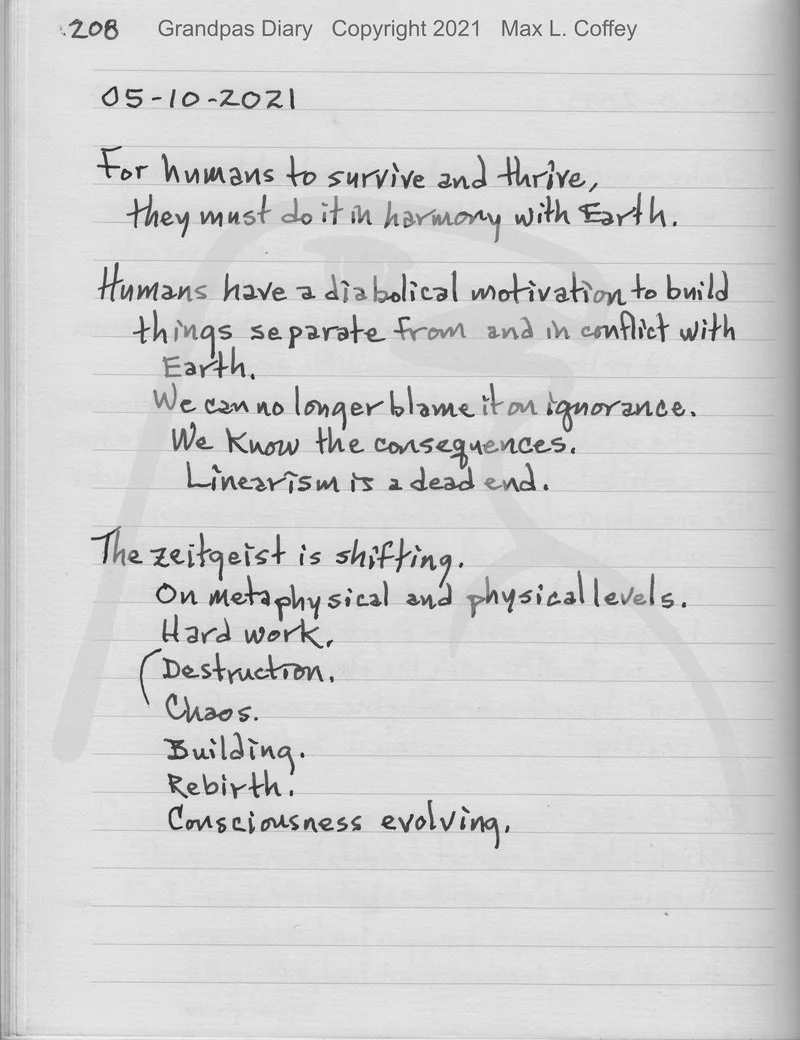 208 Grandpas Diary Copyright 2021 Max L. Coffey
05-10-2021
For humans to survive and thrive,
they must do it in harmony with Earth.
Humans have a diabolical motivation to build
things separate from and in conflict with
Earth.
We can no longer blame it on ignorance.
We know the consequences.
Linearism is a dead end.
The zeitgeist is shifting.
On metaphysical and physical levels.
Hard work.
Destruction.
Chaos.
Building.
Rebirth.
Consciousness evolving.